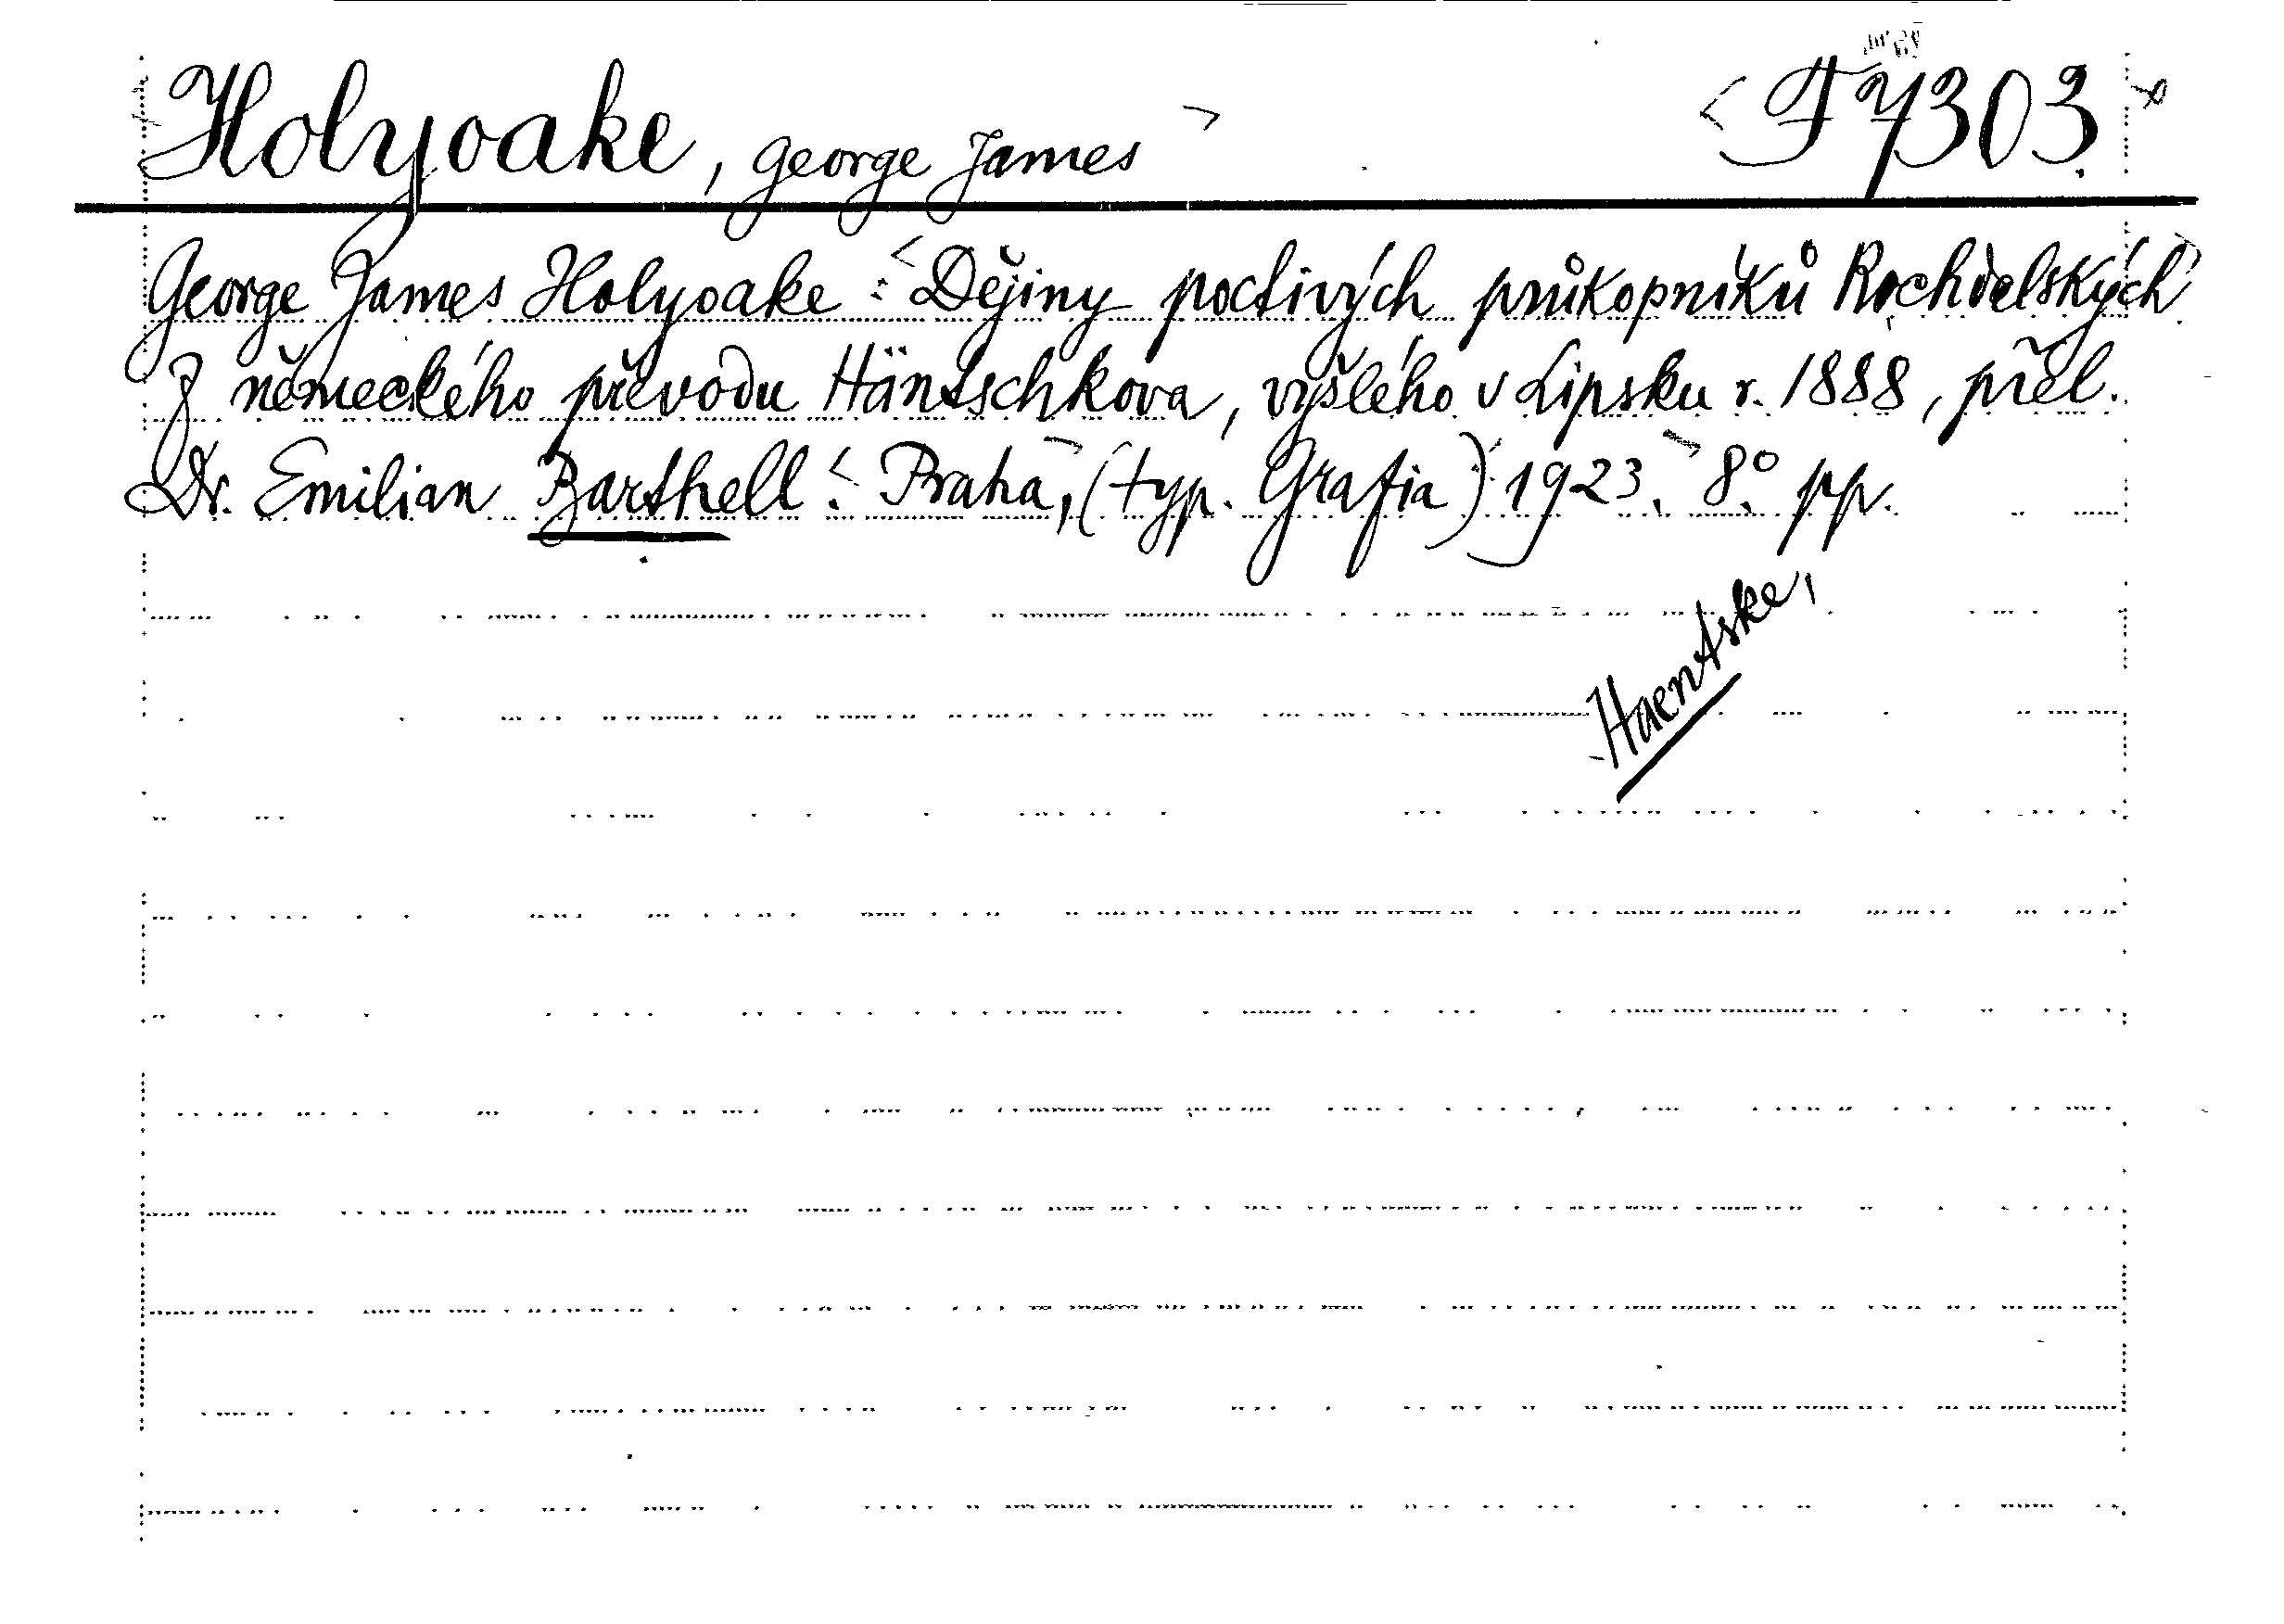 Holyoake, George James
F 7303.
George James Holyoake: Dějiny poctivých průkopníků Rochdelských
Z německého převodu Häntschkova, vyšlého v Lipsku r. 1888, přel.
Dr. Emilian Barthell. Praha, (typ. Grafia) 1923. 8º. pp.
Haentske,